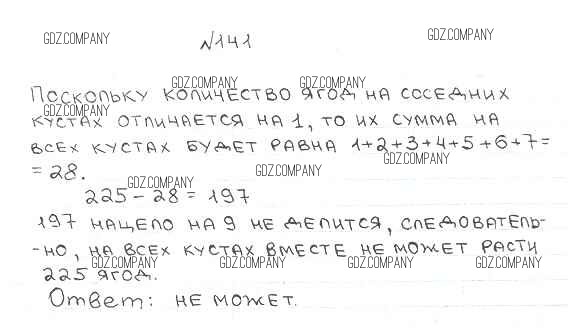 GDZ.COMPANY
GDZ.COMPANY
№141
GDZ.COMPANY GDZ.COMPANY
Поскольку количество ягод на соседних
GDZ.COMPANY
кустах отличается на 1, то их сумма на
всех кустах будет равна 1+2+3+4+5+6+7=
GDZ.COMPANY
= 28.
GDZ.COMPANY
GDZ.COMPANY
225 - 28 = 197
197 нацело на 9 не делится, следователь-
-но, на всех кустах вместе не может расти
GDZ.COMPANY GDZ.COMPANY GDZ.COMPANY GDZ.COMPANY
225 ягод.
Ответ: не может.